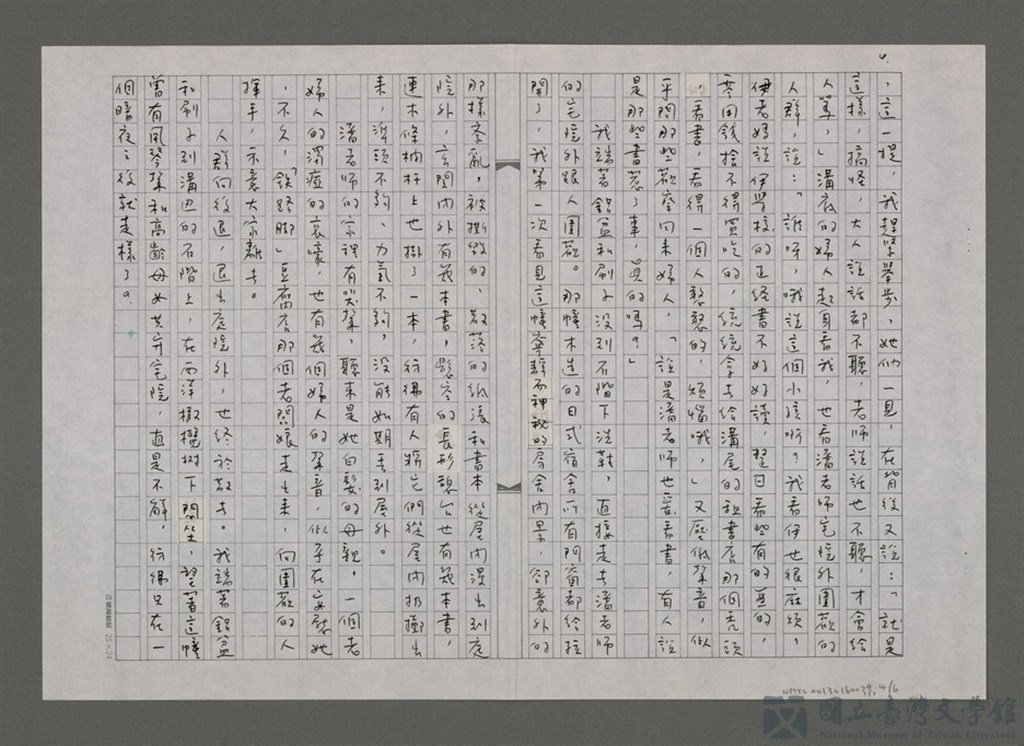 4.
，這一提，我趕緊舉步，她們一見，在背後又說：「就是
這樣，搞怪，大人說話都不聽，老師說話也不聽，才會給
人罵，」溝衣的婦人起身看我，也看潘老師宅院外圍觀的
人群，說：「誰呀，哦說這個小孩啊？我看伊也很麻煩，
伊老媽說伊學校的正經書不好好讀，整日看些有的無的，
零用錢捨不得買吃的，統統拿去給溝尾的租書店那個禿頭
，看書，看得一個人憨憨的，煩惱哦，」又壓低聲音，似
乎問那些觀望回來婦人，「說是潘老師也愛看書，有人說
是那些書惹了事，真的嗎？」
我端著鋁盆和刷子沒到石階下洗鞋，直接走去潘老師
的宅院外跟人圍觀。那幢木造的日式宿舍所有門窗都給拉
開了，我第一次看見這幢寧靜而神秘的房舍內景，卻意外的
那樣紊亂，被撕毀的、散落的紙張和書本從屋內漫出到庭
院外，玄關內外有幾本書，懸空的長形窗台也有幾本書，
連木條柵杆上也掛了一本，彷彿有人將它們從屋內扔擲出
來，準頭不夠、力氣不夠，沒能如期丟到屋外。
潘老師的家裡有哭聲，聽來是她白髮的母親，一個老
婦人的瘖瘂的哀嚎，也有幾個婦人的聲音，似乎在安慰她
，不久，「鐵路腳」豆腐店那個老闆娘走出來，向圍觀的人
揮手，示意大家離去。
人群向後退，退出庭院外，也終於散去。我端著鋁盆
和刷子到溝邊的石階上，在西洋橄欖樹下悶坐，望著這幢
曾有風琴聲和高齡母女共弃宅院，直是不解，彷彿只在一
個暗夜之後就走樣了？
25×24
NMTL 20130160039, 4/6
國立臺灣文學館
National Museum of Taiwan Literature